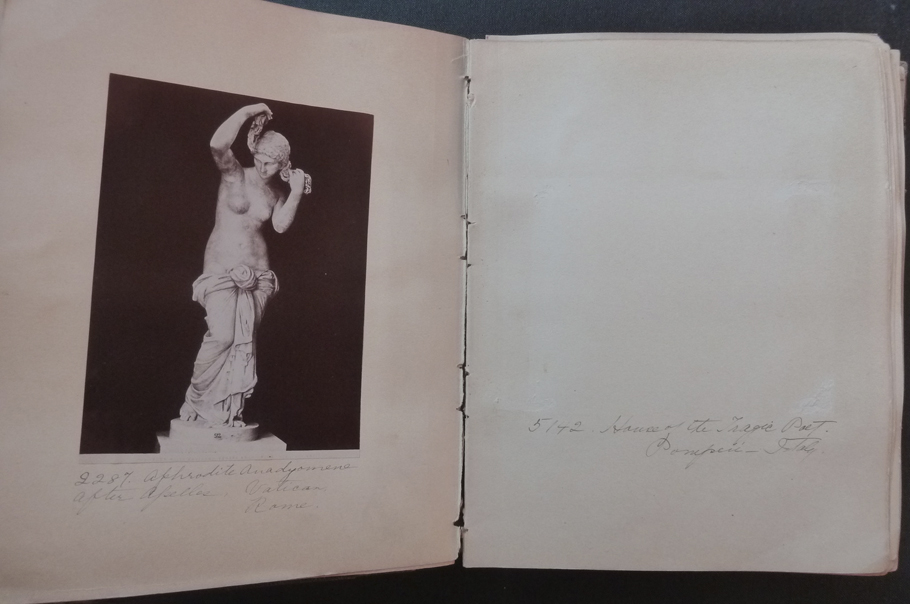 2287. Aphrodite Anadyomene
after Apelles. Vatican
Rome.
5142. House of the Tragic Poet.
Pompeii -